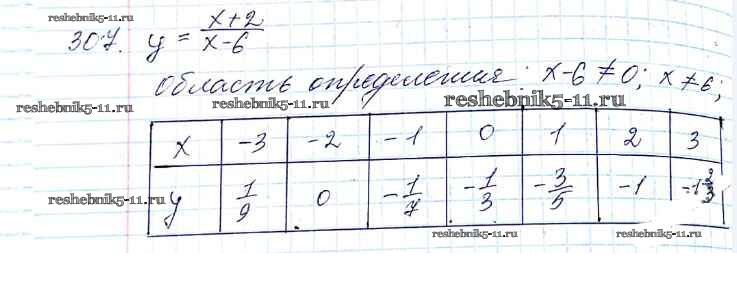 reshebnik5-11.ru
reshebnik5-11.ru
307. y = (x+2)/(x-6)
область определения: x-6≠0; x≠6;
reshebnik5-11.ru reshebnik5-11.ru reshebnik5-11.ru
x -3 -2 -1 0 1 2 3
y 1/9 0 -1/7 -1/3 -3/5 -1 -1 2/3
reshebnik5-11.ru reshebnik5-11.ru reshebnik5-11.ru
reshebnik5-11.ru reshebnik5-11.ru reshebnik5-11.ru